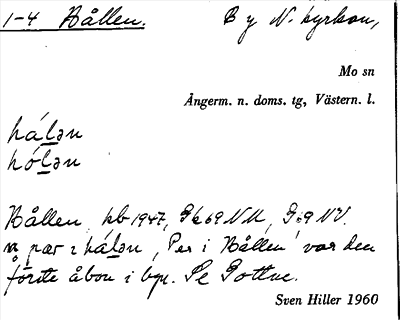 1-4 Hållen. By N. kyrkan,
Mo sn
Ångerm. n. doms. tg, Västern. l.
hálən
hólən
Hållen kb 1947, Gk 69 NV.
pær i hálən, "Per i Hållen" var den
förste åbon i byn. Se Gottne.
Sven Hiller 1960